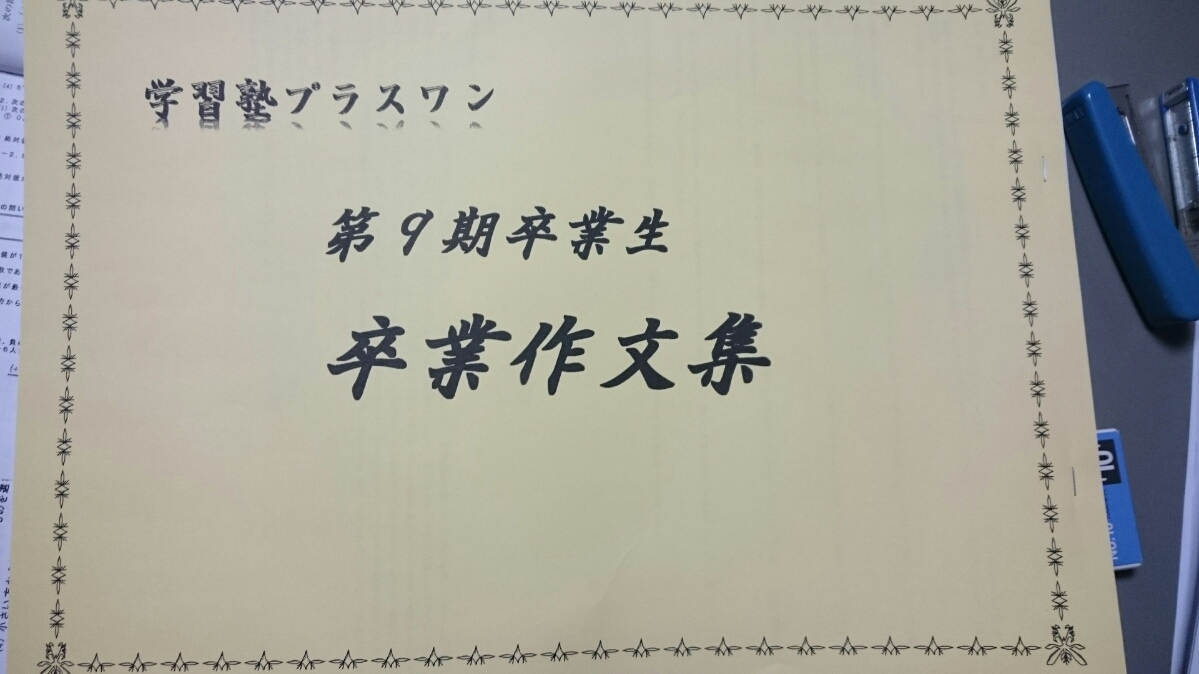 学習塾プラスワン
第９期卒業生
卒業作文集